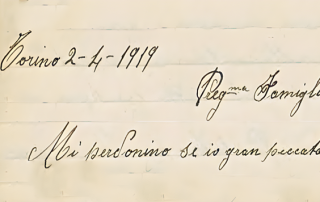 Torino 2-4-1919
Preg.ma Famigli
Mi perdonino se io gran peccato